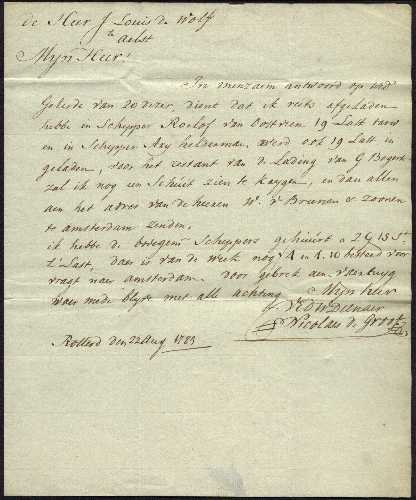 de Heer J Louis de Wolf
te Aelst
Mijn Heer!
In antwoord op UEd
Geleide van 20 dezer, dient dat ik reets afgeladen
hebbe in Schipper Roelof van Oostveen 19 Last tarw
en in Schipper Ary helderman, werd ook 19 Last in
geladen, voor het restant van de Lading van G Bogert
zal ik nog een Schuit zien te krygen, en dan allen
aen het adres van de heeren W. V Brienen & zoonen
te amsterdam zenden.
ik hebbe de Scheppers gehuurt a 2 G 15 St
't Last, daer is van de week nog 4 a 4.10 besteed voor
vragt naer amsterdam. door gebrek aen
waer mede blyve met alle achting Mijn heer
UEDWDienaer
Nicolaas de Groot
Rotterd den 22 Aug 1789